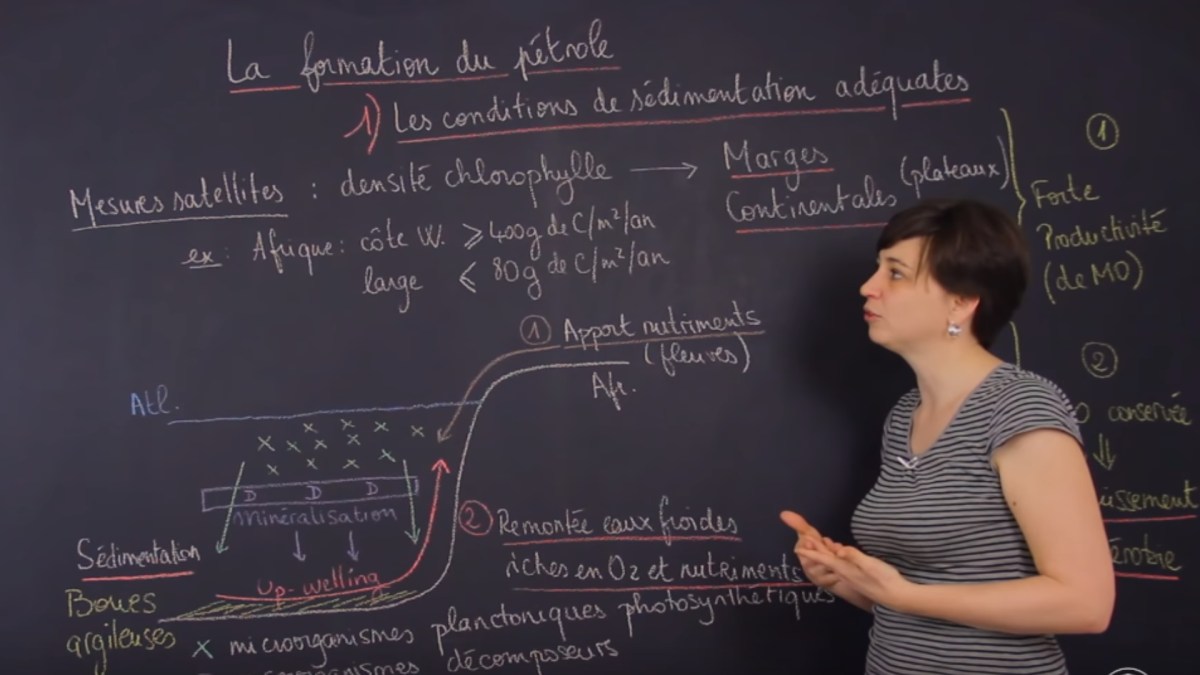 La formation du pétrole
1) Les conditions de sédimentation adéquates
Mesures satellites : densité chlorophylle → Marges
Continentales (plateaux)
ex : Afrique : côte W. ⩾ 400g de C/m²/an
large ⩽ 80g de C/m²/an
1
Forte
Productivité
(de MO)
1 Apport nutriments
(fleuves)
Afr.
Atl.
x x x x x x x x x x x x
D D D
minéralisation
Sédimentation
Up-welling
Boues
argileuses
2 Remontée eaux froides
riches en O2 et nutriments
2
conservée
⇓
x microorganismes planctoniques photosynthétiques
décomposeurs